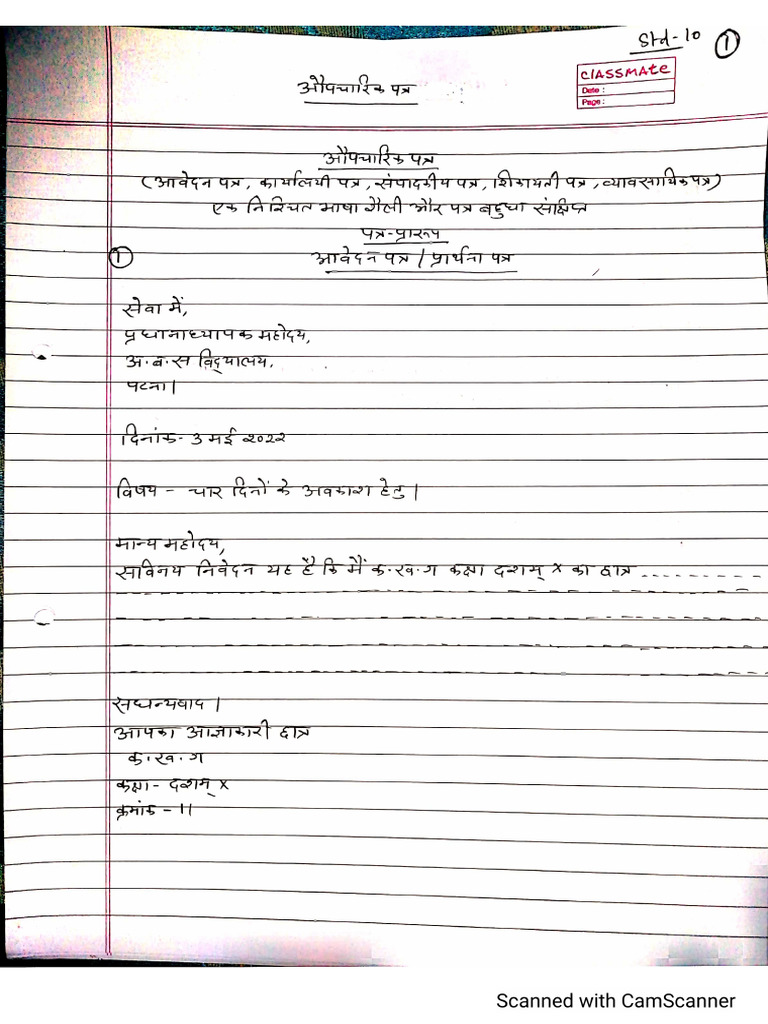 Std-10 ①
CLASSMATE
Date :
Page :
औपचारिक पत्र
औपचारिक पत्र
(आवेदन पत्र, कार्यालयी पत्र, संपादकीय पत्र, शिकायती पत्र, व्यावसायिक पत्र)
एक निश्चित भाषा शैली और पत्र बहुधा संक्षिप्त
पत्र-प्रारूप
① आवेदन पत्र / प्रार्थना पत्र
सेवा में,
प्रधानाध्यापक महोदय,
अ.ब.स विद्यालय,
पटना।
दिनांक- 3 मई २०२२
विषय - चार दिनों के अवकाश हेतु।
मान्य महोदय,
सविनय निवेदन यह है कि मैं क.ख.ग कक्षा दशम् x का छात्र
सधन्यवाद।
आपका आज्ञाकारी छात्र
क.ख.ग
कक्षा- दशम् x
क्रमांक - 11
Scanned with CamScanner